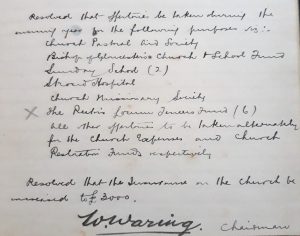 Resolved that offertories be taken during the
ensuing year for the following purposes viz:-
Church Pastoral Aid Society
Bishop of Gloucester's Church & School Fund
Sunday School (2)
Stroud Hospital
Church Missionary Society
X The Rector's Fund (6)
all other offertories to be taken alternately
for the Church Expenses and Church
Restoration Funds respectively
Resolved that the Insurance on the Church be
increased to £3000.
W. Waring. Chairman